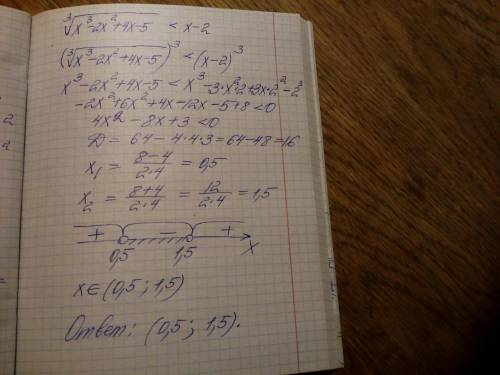 ∛(x³-2x²+4x-5) < x-2
(∛(x³-2x²+4x-5))³ < (x-2)³
x³-2x²+4x-5 < x³-3·x²·2+3x·2²-2³
-2x²+6x²+4x-12x-5+8<0
4x²-8x+3<0
D = 64-4·4·3=64-48=16
x₁ = (8-4)/(2·4) = 0,5
x₂ = (8+4)/(2·4) = 12/(2·4) = 1,5
+ - +
0,5 1,5 x
x∈(0,5; 1,5)
Ответ: (0,5; 1,5).